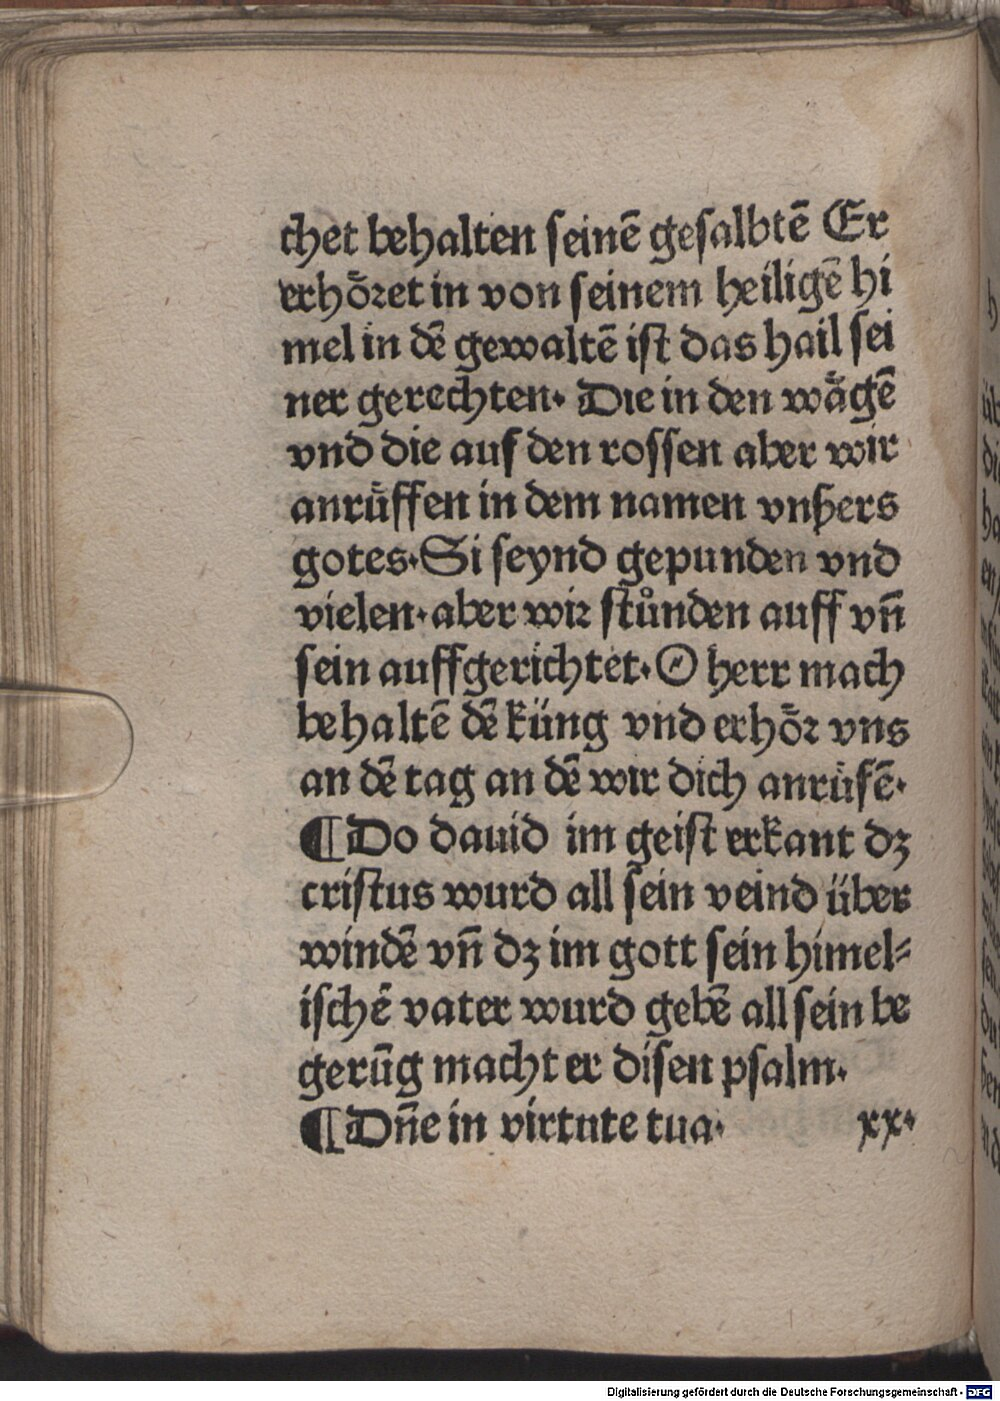 chet behalten seinē gesalbtē Er
erhoͤret in von seinem heiligē hi
mel in dē gewaltē ist das hail sei
ner gerechten. Die in den waͤgē
vnd die auf den rossen aber wir
anruͤffen in dem namen vnßers
gotes. Si seynd gepunden vnd
vielen. aber wir stůnden auff vn̄
sein auffgerichtet. O herr mach
behaltē dē küng vnd erhoͤr vns
an dē tag an dē wir dich anruͤfē.
¶ Do dauid im geist erkant dz
cristus wurd all sein veind über
windē vn̄ dz im gott sein himel⸗
ischē vater wurd gebē all sein be
gerūg macht er disen psalm.
¶ Dn̄e in virtute tua. xx.
Digitalisierung gefördert durch die Deutsche Forschungsgemeinschaft - DFG